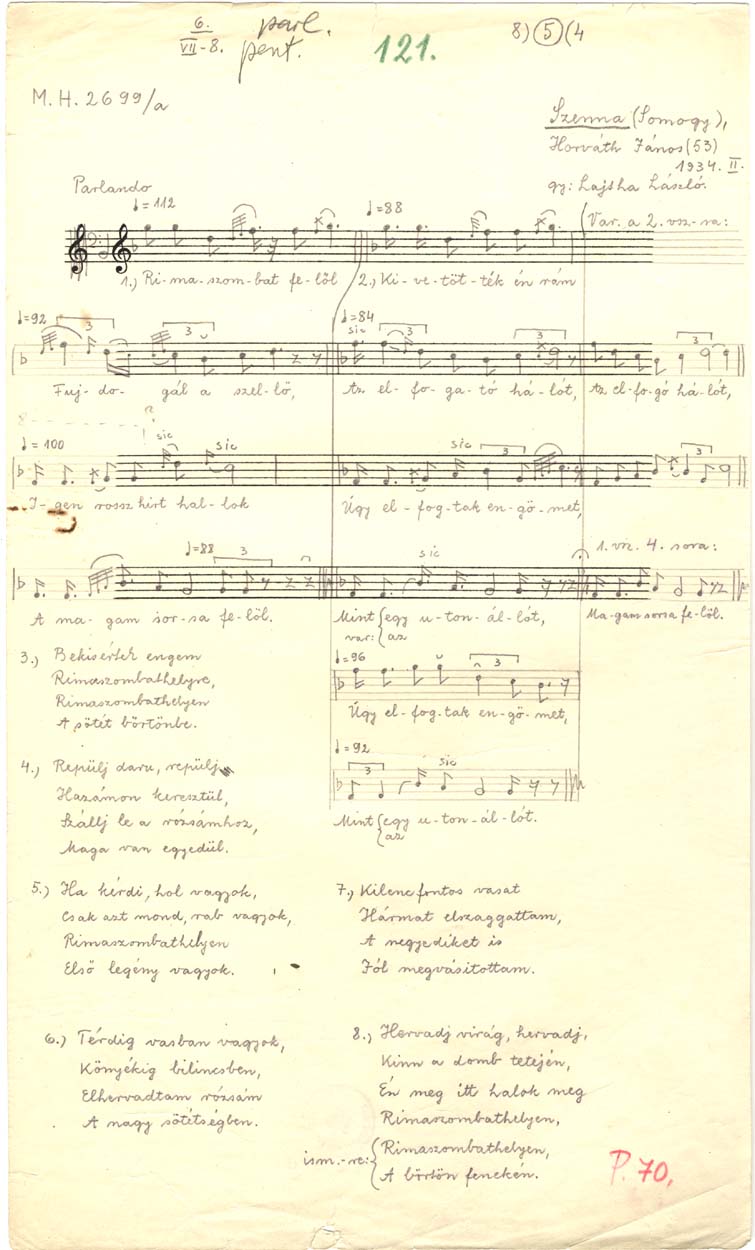 6.
VII-8.
parl.
pent.
121.
8) 5 (4
M. H. 2699/a
Szenna (Somogy),
Horváth János (53)
1934. II.
gy: Lajtha László.
Parlando
♩= 112
♩=88
(Var. a 2. vsz-ra:
1.) Ri-ma-szom-bat fe-lől
2.) Ki-ve-töt-ték én rám
♩=92
3
3
♩=84
sic
3
3
3
Fuj-do-gál a szel-lő,
Az el-fo-ga-tó há-lót,
Az el-fo-gó há-lót,
8
?
♩= 100
sic
sic
sic
3
3
I-gen rossz hirt hal-lok
Úgy el-fog-tak en-gö-met,
♩=88
3
sic
1. vsz. 4. sora:
A ma-gam sor-sa fe-löl.
Mint {egy u-ton-ál-lót,
var: {az
Ma-gam sorsa fe-löl.
3.) Bekisértek engem
Rimaszombathelyre,
Rimaszombathelyen
A sötét börtönbe.
♩=96
3
Úgy el-fog-tak en-gö-met,
4.) Repülj daru, repülj
Hazámon keresztül,
Szállj le a rózsámhoz,
Maga van egyedül.
♩=92
3
sic
Mint {egy u-ton-ál-lót.
{az
5.) Ha kérdi, hol vagyok,
Csak azt mond, rab vagyok,
Rimaszombathelyen
Első legény vagyok.
7.) Kilenc fontos vasat
Hármat elszaggattam,
A negyediket is
Jól megvásitottam.
6.) Térdig vasban vagyok,
Könyékig bilincsben,
Elhervadtam rózsám
A nagy sötétségben.
8.) Hervadj virág, hervadj,
Kinn a domb tetején,
Én meg itt halok meg
Rimaszombathelyen,
ism.-re: {Rimaszombathelyen,
{A börtön fenekén.
P. 70.